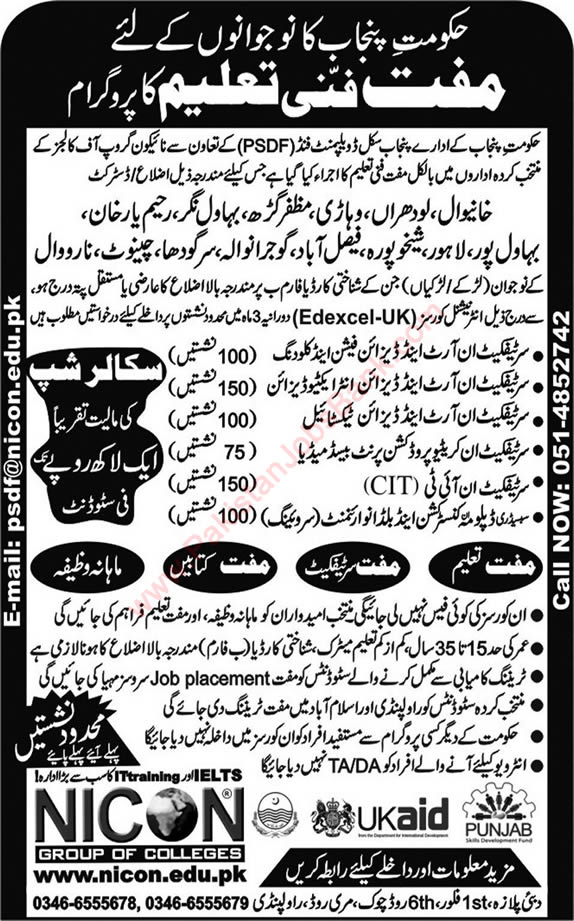 حکومتِ پنجاب کا نوجوانوں کے لئے
مفت فنّی تعلیم کا پروگرام
حکومتِ پنجاب کے ادارے پنجاب سکل ڈویلپمنٹ فنڈ (PSDF) کے تعاون سے نائیکون گروپ آف کالجز کے
منتخب کردہ اداروں میں بالکل مفت فنی تعلیم کا اجراء کیا گیا ہے جس کیلئے مندرجہ ذیل اضلاع/ڈسٹرکٹ
خانیوال، لودھراں، وہاڑی، مظفر گڑھ، بہاول نگر، رحیم یار خان،
بہاول پور، لاہور، شیخوپورہ، فیصل آباد، گوجرانوالہ، سرگودھا، چنیوٹ، نارووال
کے نوجوان (لڑکے/لڑکیاں) جن کے شناختی کارڈ یا فارم ب پر مندرجہ بالا اضلاع کا عارضی یا مستقل پتہ درج ہو،
سے درج ذیل انٹرنیشنل کورسز (Edexcel-UK) دورانیہ 3 ماہ میں محدود نشستوں پر داخلے کیلئے درخواستیں مطلوب ہیں
• سرٹیفکیٹ ان آرٹ اینڈ ڈیزائن فیشن اینڈ کلودنگ (100 نشستیں)
• سرٹیفکیٹ ان آرٹ اینڈ ڈیزائن انٹر ایکٹیو ڈیزائن (150 نشستیں)
• سرٹیفکیٹ ان آرٹ اینڈ ڈیزائن ٹیکسٹائل (100 نشستیں)
• سرٹیفکیٹ ان کریٹیو پروڈکشن پرنٹ بیسڈ میڈیا (75 نشستیں)
• سرٹیفکیٹ ان آئی ٹی (CIT) (150 نشستیں)
• سبسڈری ڈپلومہ ان کنسٹرکشن اینڈ بلڈ انوائرنمنٹ (سروئینگ) (100 نشستیں)
سکالر شپ
کی مالیت تقریباً
ایک لاکھ روپے تک
فی سٹوڈنٹ
مفت تعلیم
مفت سرٹیفکیٹ
مفت کتابیں
ماہانہ وظیفہ
• ان کورسز کی کوئی فیس نہیں لی جائیگی منتخب امیدواران کو ماہانہ وظیفہ، اور مفت تعلیم فراہم کی جائیں گی
• عمر کی حد 15 تا 35 سال، کم از کم تعلیم میٹرک، شناختی کارڈ یا (ب فارم) مندرجہ بالا اضلاع کا ہونا لازمی ہے
• ٹریننگ کامیابی سے مکمل کرنے والے سٹوڈنٹس کو مفت Job placement سروسز مہیا کی جائیں گی
• منتخب کردہ سٹوڈنٹس کو راولپنڈی اور اسلام آباد میں مفت ٹریننگ دی جائے گی
• حکومت کے دیگر کسی پروگرام سے مستفید افراد کو ان کورسز میں داخلہ نہیں دیا جائیگا
• انٹرویو کیلئے آنے والے افراد کو TA/DA نہیں دیا جائیگا
محدود نشستیں
پہلے آیئے پہلے پائیے
IELTS اور ITtraining کا سب سے بڑا ادارہ!
NICON®
GROUP OF COLLEGES
www.nicon.edu.pk
0346-6555678, 0346-6555679
UKaid
from the Department for International Development
PUNJAB
Skills Development Fund
مزید معلومات اور داخلے کیلئے رابطہ کریں
دبئی پلازہ، 1st فلور، 6th روڈ چوک، مری روڈ، راولپنڈی
E-mail: psdf@nicon.edu.pk
Call NOW: 051-4852742
www.PakistanJobsBank.com